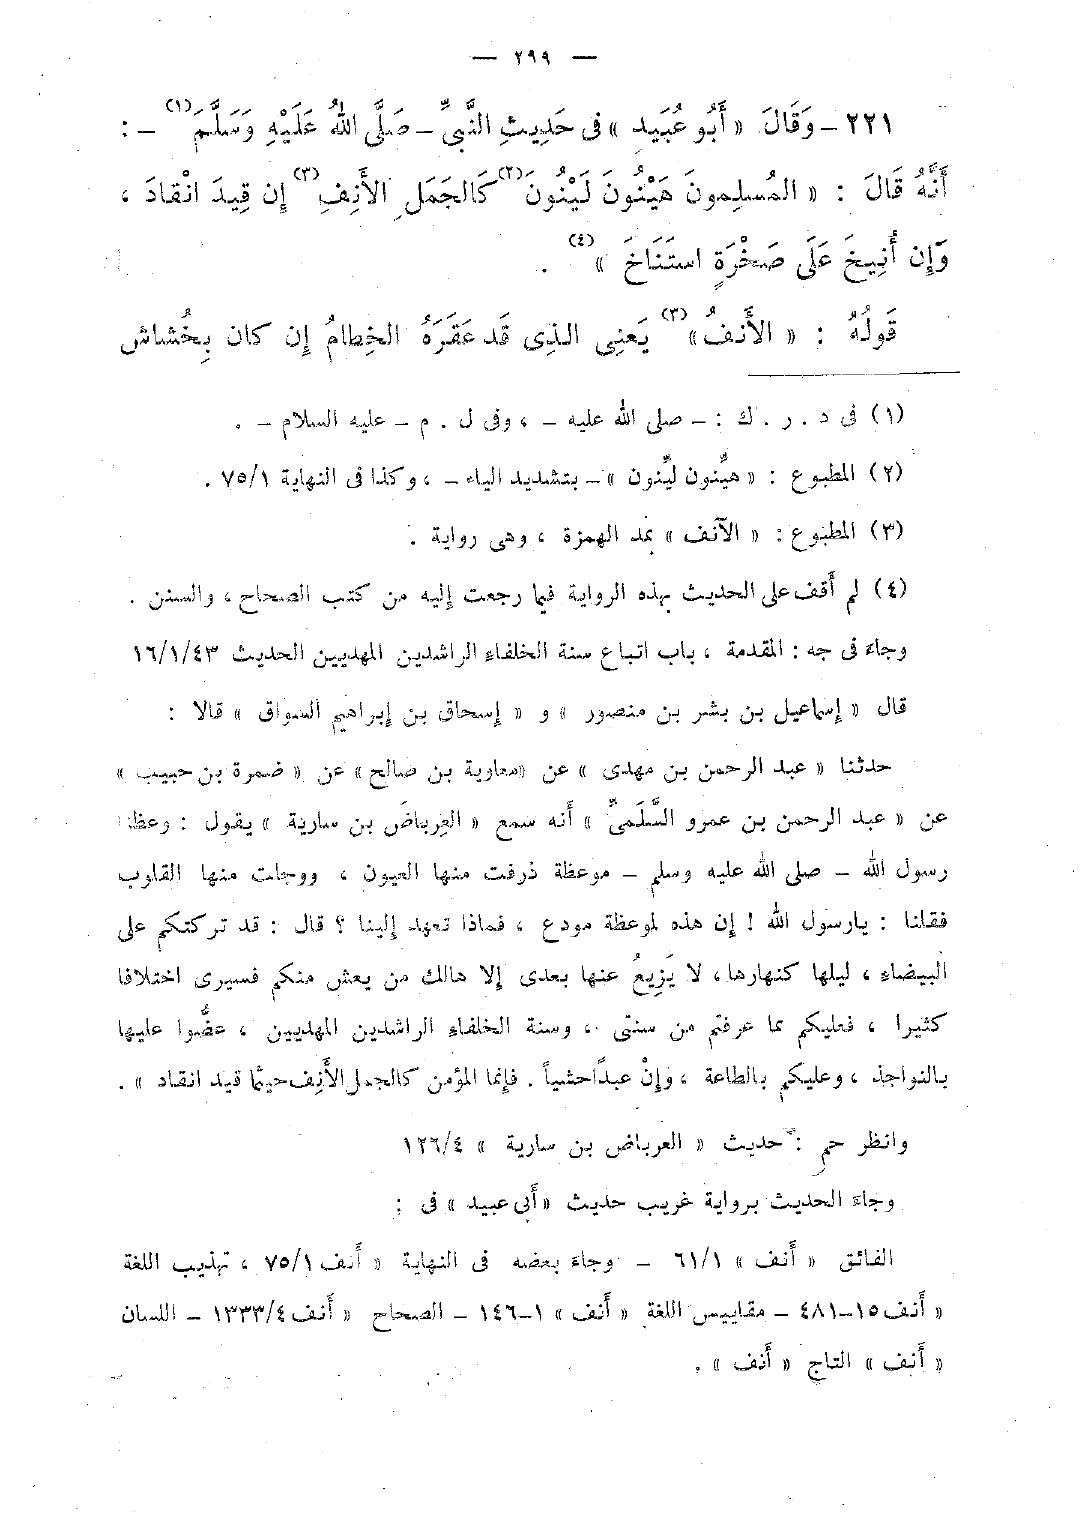 — ٢٩٩ —
٢٢١ – وَقَالَ « أَبُو عُبَيد » فى حَدِيثِ النَّبِىِّ – صَلَّى اللهُ عَلَيْهِ وَسَلَّمَ (١) – :
أَنَّهُ قَالَ : « المُسلِمونَ هَيْنُونَ لَيْنُونَ (٢) كَالجَمَلِ الأَنِفِ (٣) إِن قِيدَ انْقادَ ،
وَإِن أُنِيخَ عَلَى صَخْرَةٍ استَنَاخَ » (٤) .
قَولُهُ : « الأَنِفُ » (٣) يَعنِى الذِى قَد عَقَرَهُ الخِطامُ إِن كان بِخُشاش
(١) فى د . ر . ك : – صلى الله عليه – ، وفى ل . م – عليه السلام – .
(٢) المطبوع : « هيّنون ليّنون » – بتشديد الياء – ، وكذا فى النهاية ٧٥/١ .
(٣) المطبوع : « الآنف » بمد الهمزة ، وهى رواية .
(٤) لم أَقف على الحديث بهذه الرواية فيما رجعت إليه من كتب الصحاح ، والسنن .
وجاء فى جه : المقدمة ، باب اتباع سنة الخلفاء الراشدين المهديين الحديث ١٦/١/٤٣
قال « إسماعيل بن بشر بن منصور » و « إسحاق بن إبراهيم السواق » قالا :
حدثنا « عبد الرحمن بن مهدى » عن « معاوية بن صالح » عن « ضمرة بن حبيب »
عن « عبد الرحمن بن عمرو السَّلَمىّ » أَنه سمع « العِرباضَ بن سارية » يقول : وعظنا
رسول الله – صلى الله عليه وسلم – موعظة ذرفت منها العيون ، ووجلت منها القلوب
فقلنا : يارسول الله ! إن هذه لموعظة مودع ، فماذا تعهد إلينا ؟ قال : قد تركتكم على
البيضاء ، ليلها كنهارها ، لا يَزِيغُ عنها بعدى إلا هالك من يعش منكم فسيرى اختلافا
كثيرا ، فعليكم بما عرفتم من سنتى ، وسنة الخلفاء الراشدين المهديين ، عضُّوا عليها
بالنواجذ ، وعليكم بالطاعة ، وإنْ عبدًا حشياً . فإنما المؤمن كالجمل الأَنِف حيثما قيد انقاد » .
وانظر حم : حديث « العرباض بن سارية » ١٢٦/٤
وجاء الحديث برواية غريب حديث « أَبى عبيد » فى :
الفائق « أَنف » ٦١/١ – وجاء بعضه فى النهاية « أَنف ٧٥/١ ، تهذيب اللغة
« أَنف ١٥–٤٨١ – مقاييس اللغة « أَنف » ١–١٤٦ – الصحاح « أَنف ١٣٣٣/٤ – اللسان
« أَنف » التاج « أَنف » .